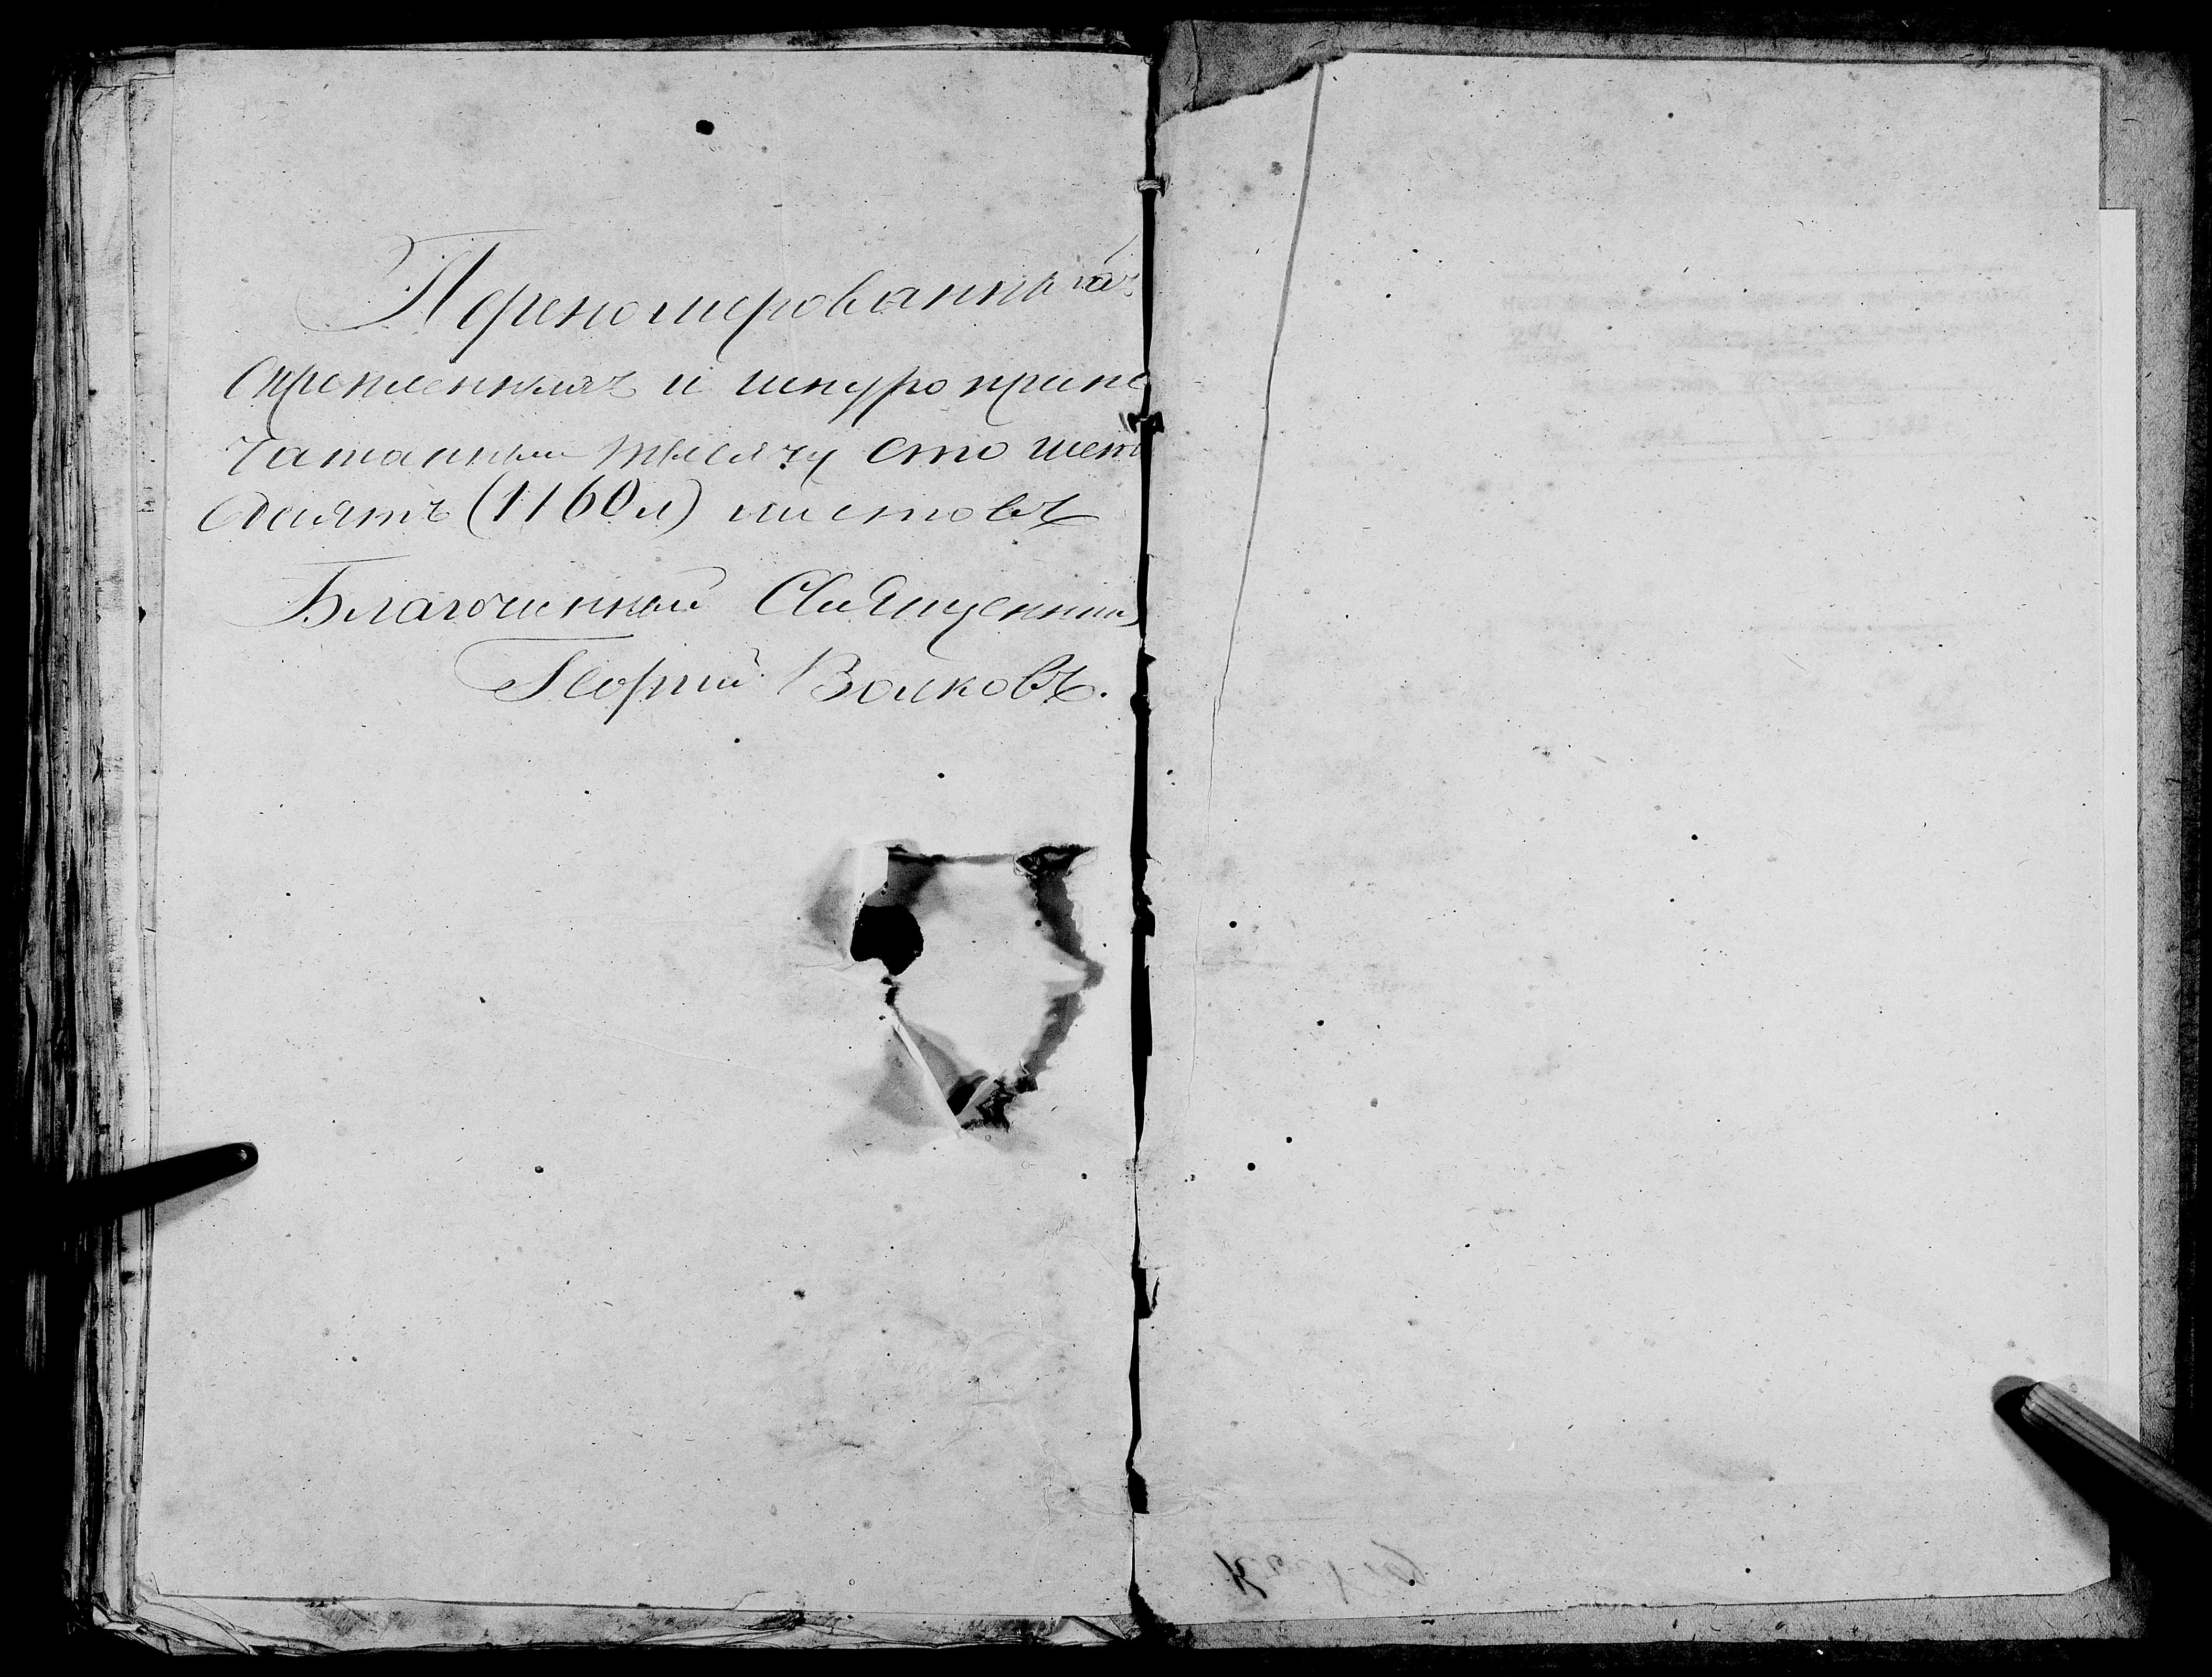 Переномированныхъ
скрепленныхъ и шнуро припе
чатанныхъ тысячу сто шесть
десятъ (1160 л) листовъ
Благочинный Священникъ
Георгий Волковъ.